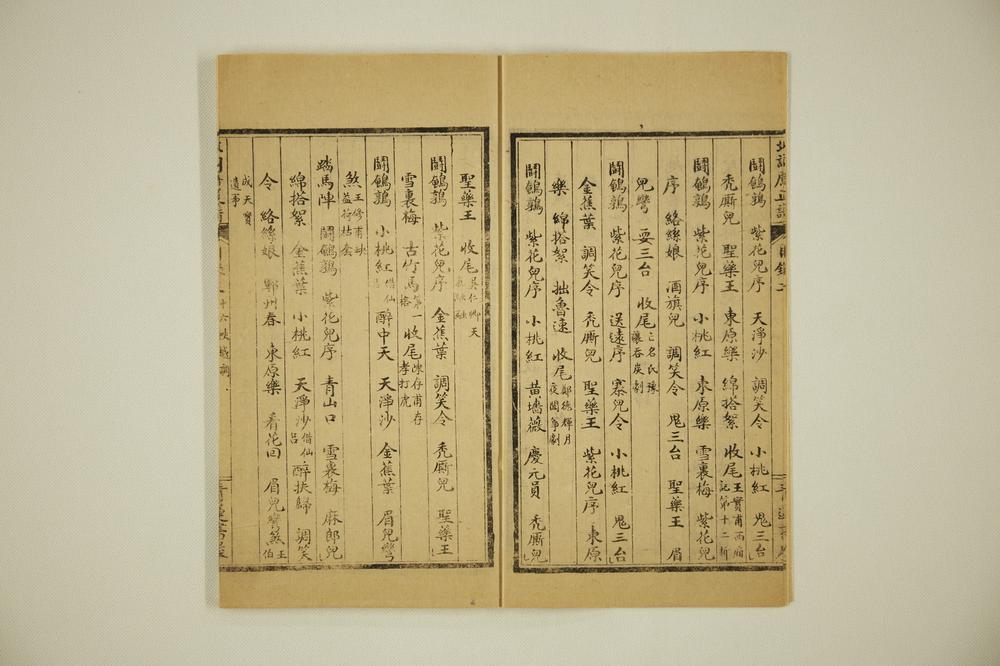 鬪鵪鶉 紫花兒序 天淨沙 調笑令 小桃紅 鬼三台
禿厮兒 聖藥王 東原樂 綿搭絮 收尾 王實甫西廂記第十二折
鬪鵪鶉 紫花兒序 小桃紅 東原樂 雪裏梅 紫花兒
序 絡絲娘 酒旗兒 調笑令 鬼三台 聖藥王 眉
兒彎 耍三台 收尾 亡名氏豫讓吞炭劇
鬪鵪鶉 紫花兒序 送遠序 寨兒令 小桃紅 鬼三台
金蕉葉 調笑令 禿厮兒 聖藥王 紫花兒序 東原
樂 綿搭絮 拙魯速 收尾 鄭德輝月夜聞箏劇
鬪鵪鶉 紫花兒序 小桃紅 黃墻薇 慶元貞 禿厮兒
聖藥王 收尾 吳仁卿天
鬪鵪鶉 紫花兒序 金蕉葉 調笑令 禿厮兒 聖藥王
雪裏梅 古竹馬 第一格 收尾 陳存甫存孝打虎
鬪鵪鶉 小桃紅 借仙呂 醉中天 天淨沙 金蕉葉 眉兒彎
煞 王修甫缺盆荷枯奩
踏馬陣 鬪鵪鶉 紫花兒序 青山口 雪裏梅 麻郎兒
綿搭絮 金蕉葉 小桃紅 天淨沙 借仙呂 醉扶歸 調笑
令 絡絲娘 鄆州春 東原樂 看花回 眉兒彎煞 王伯
成天寶遺事